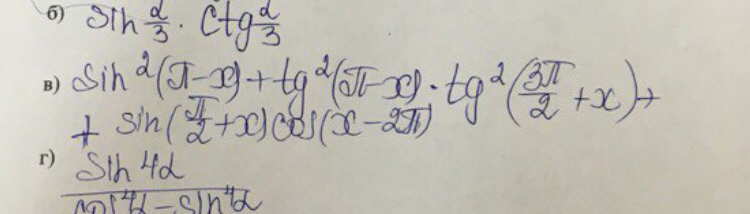 б) sin α/3 · ctg α/3
в) sin²(π-x)+tg²(π-x)·tg²(3π/2+x)+
+ sin(π/2+x)cos(x-2π)
г) sin 4α
cos⁴α-sin⁴α